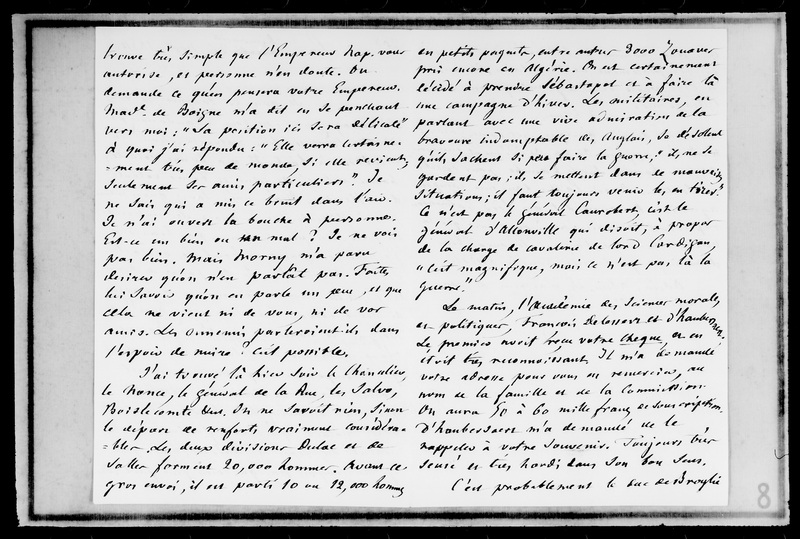 trouve très simple que l'Empereur Nap. vous
autorise, et personne n'en doute. On
demande ce qu'en pensera votre Empereur.
Made. de Boigne m'a dit en se penchant
vers moi: "Sa position ici sera délicate"
à quoi j'ai répondu: "Elle verra certaine-
-ment très peu de monde, si elle revient;
seulement ses amis particuliers". Je
ne sais qui a mis ce bruit dans l'air.
Je n'ai ouvert la bouche à personne.
Est-ce un bien ou un mal? Je ne vois
pas bien. Mais Morny m'a paru
désirer qu'on n'en parlât pas. Faites
lui savoir qu'on en parle un peu, et que
cela ne vient ni de vous, ni de vos
amis. Les ennemis parleroient-ils dans
l'espoir de nuire? C'est possible.
J'ai trouvé là hier soir le Chancelier,
le Nonce, le général de la Rue, les Salvo,
Boislecomte &us. On ne savoit rien, sinon
le départ de renforts vraiment considéra-
-bles. Les deux divisions Dulac et de
Salles forment 20,000 hommes. Avant ce
gros envoi, il est parti 10 ou 12,000 hommes
en petits paquets, entre autres 3000 Zouaves
pris encore en Algérie. On est certainement
décidé à prendre Sébastopol et à faire là
une campagne d'hiver. Les militaires, en
parlant avec une vive admiration de la
bravoure indomptable des Anglais, se désolent
qu'ils sachent si peu faire la guerre; "ils ne se
gardent pas; ils se mettent dans de mauvaises
situations; il faut toujours venir les en tirer."
Ce n'est pas le général Canrobert, c'est le
général d'Allonville qui disoit, à propos
de la charge de cavalerie de lord Cardigan,
"C'est magnifique, mais ce n'est pas là la
guerre."
Ce matin, l'Académie des Sciences morales
et politiques, François Delessert et d'Haubersaert.
Le premier avoit reçu votre cheque, et en
étoit très reconnoissant. Il m'a demandé
votre adresse pour vous en remercier, au
nom de la famille et de la Commission.
On aura 50 à 60 mille francs de souscription.
D'haubersaert m'a demandé de le
rappeler à votre souvenir. Toujours très
sensé et très hardi dans son bon sens.
C'est probablement le duc de Broglie
8